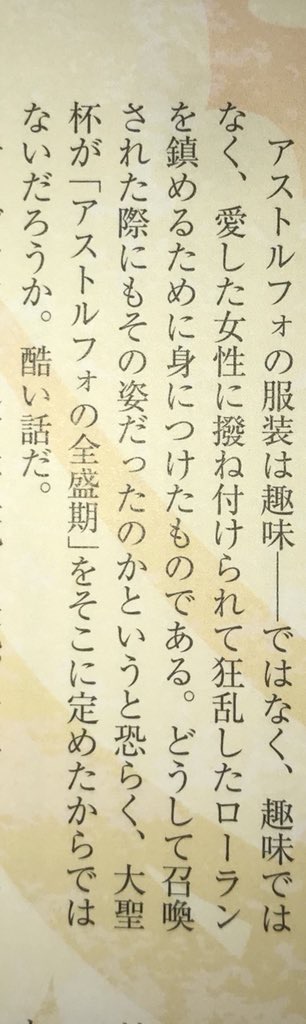 アストルフォの服装は趣味――ではなく、趣味では
なく、愛した女性に撥ね付けられて狂乱したローラン
を鎮めるために身につけたものである。どうして召喚
された際にもその姿だったのかというと恐らく、大聖
杯が「アストルフォの全盛期」をそこに定めたからでは
ないだろうか。酷い話だ。